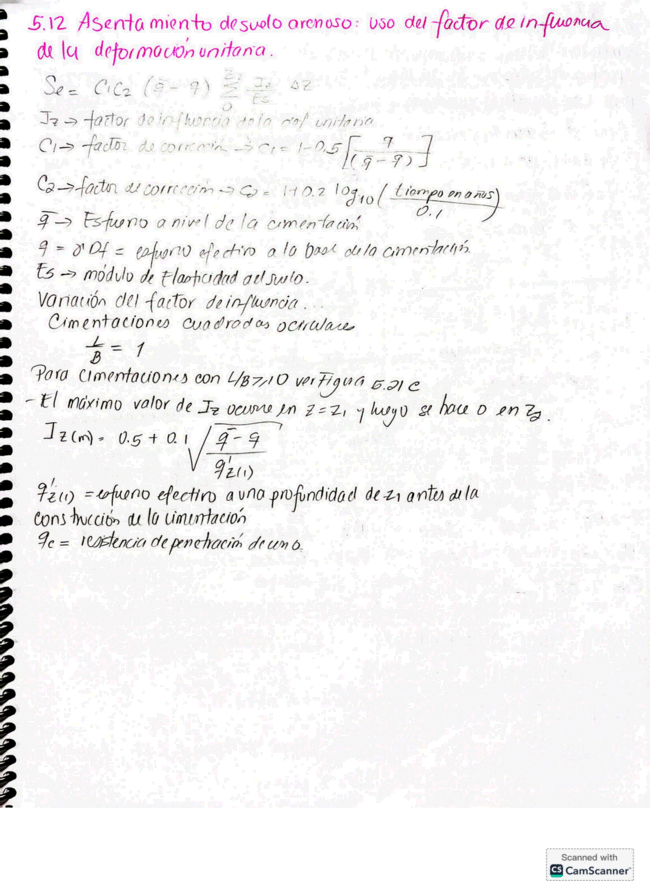 5.12 Asentamiento de suelo arenoso: uso del factor de influencia
de la deformación unitaria.
Se = C1C2 (q̄ - q) Σ 0 z2 Iz/Es ΔZ
Iz → factor de influencia de la def unitaria
C1 → factor de corrección → C1 = 1-0.5 [q/(q̄-q)]
C2 → factor de corrección → C2 = 1+0.2 log10 (tiempo en años/0.1)
q̄ → Esfuerzo a nivel de la cimentación
q = γ Df = esfuerzo efectivo a la base de la cimentación.
Es → módulo de Elasticidad del suelo.
Variación del factor de influencia...
Cimentaciones cuadradas o circulares
L/B = 1
Para cimentaciones con L/B≥10 ver Figura 5.21 c
- El máximo valor de Iz ocurre en z=z1 y luego se hace 0 en z2.
Iz(m) = 0.5 + 0.1 √(q̄-q/q'z(1))
q'z(1) = esfuerzo efectivo a una profundidad de z1 antes de la
construcción de la cimentación
qc = resistencia de penetración de cono.
Scanned with
CS CamScanner